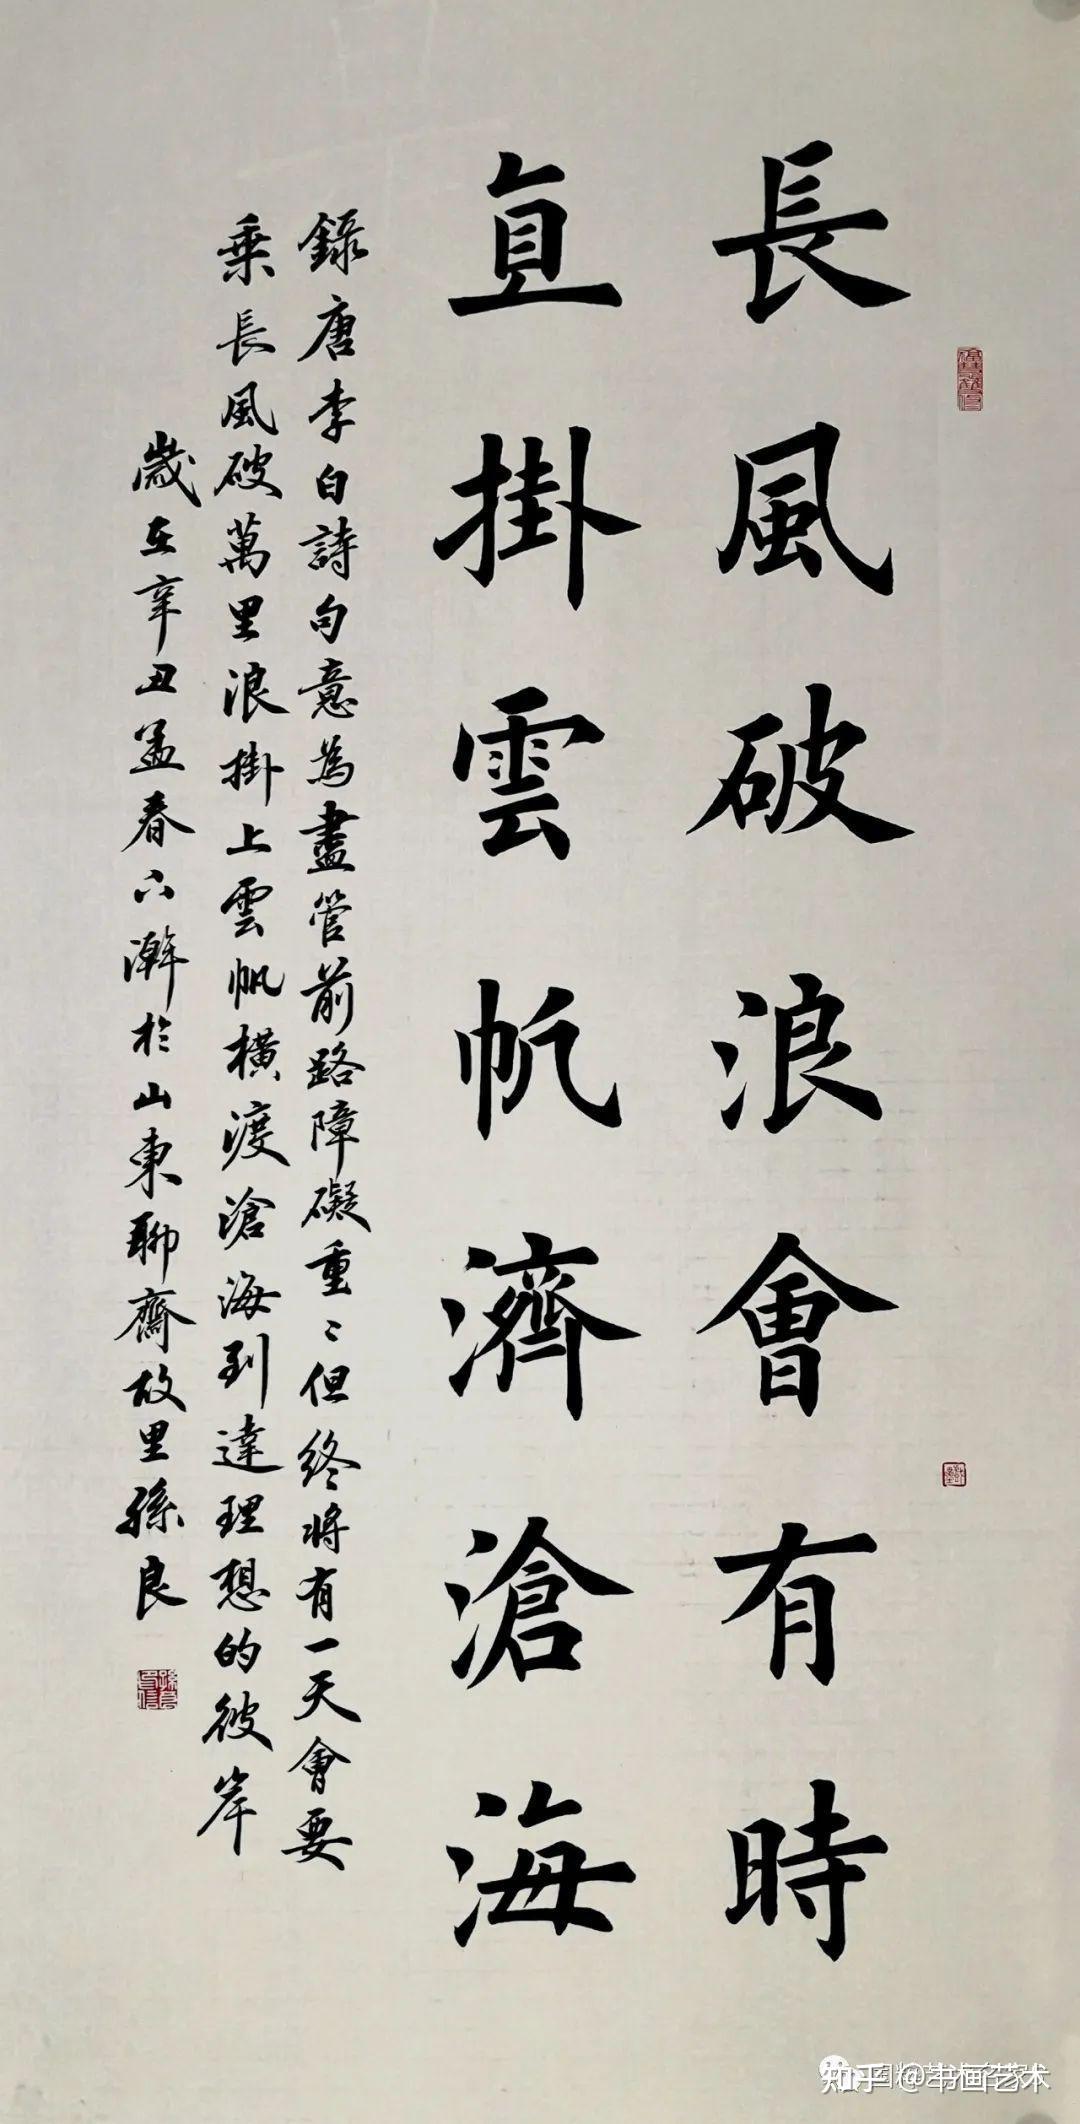 長風破浪會有時
直掛雲帆濟滄海
錄唐李白詩句意為盡管前路障礙重〻但終將有一天會要
乘長風破萬里浪掛上雲帆橫渡滄海到達理想的彼岸
歲在辛丑孟春六澣於山東聊齋故里孫良
知乎 @书画艺术